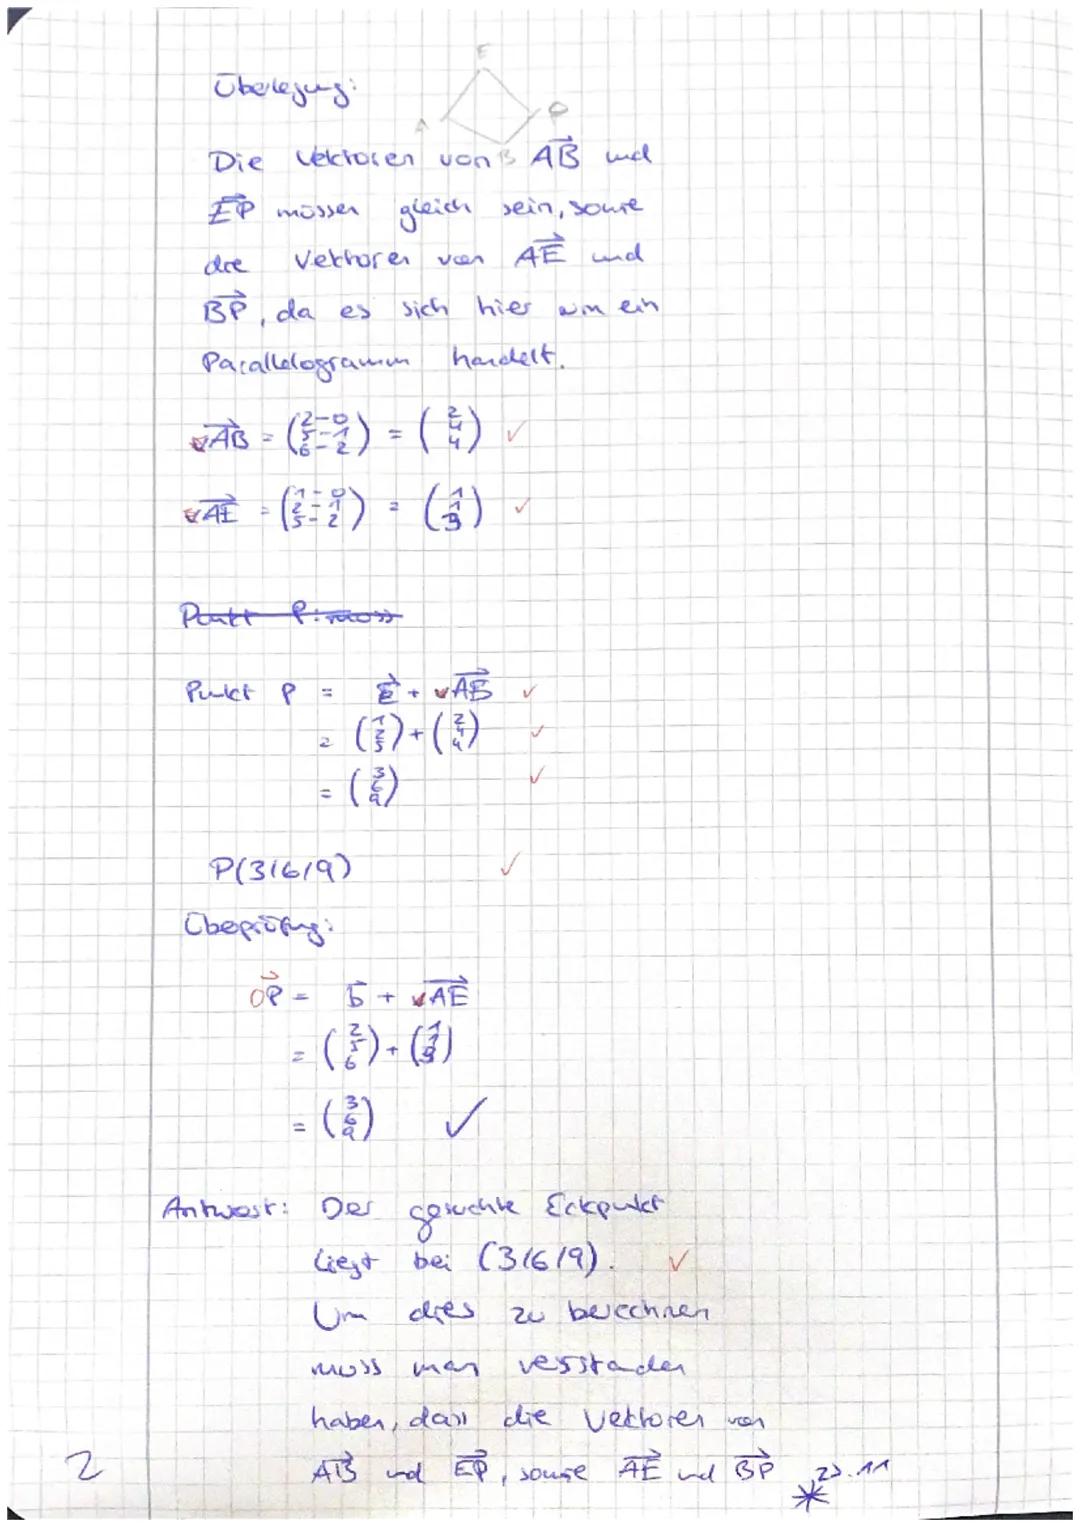 E
Überlegung:
A
P
Die Vektoren von B AB und
EP müssen gleich sein, sowie
die Vektoren von AE und
BP, da es sich hier um ein
Parallelogramm handelt.
vAB = (2-0 5-1 6-2) = (2 4 4) ✓
vAE = (1-0 2-1 5-2) = (1 1 3) ✓
Punkt P: muss
Punkt P = E + vAB ✓
= (1 2 5) + (2 4 4) ✓
= (3 6 9) ✓
P(3/6/9) ✓
Überprüfung:
OP = b + vAE
= (2 5 6) + (1 1 3)
= (3 6 9) ✓
Antwort: Der gesuchte Eckpunkt
liegt bei (3/6/9). ✓
Um dies zu berechnen
muss man verstanden
haben, dass die Vektoren von
2 AB und EP, sowie AE und BP, 
*